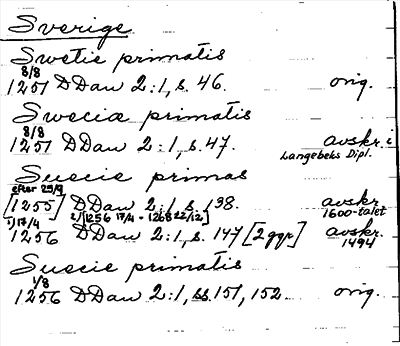 Sverige
Swetie primatis
8/8
1251 DDan 2:1, s. 46. orig.
Swecia primatis
8/8
1251 DDan 2:1, s. 47. avskr. i
Langebeks Dipl.
Suecie primas
efter 29/9
[1255] DDan 2:1, s. 138. avskr.
1600-talet
1) 17/4 2) [1256 17/4 - 1268 22/12]
1256 DDan 2:1, s. 147 [2 ggr] avskr.
1494
Suecie primatis
1/8
1256 DDan 2:1, ss. 151, 152. orig.